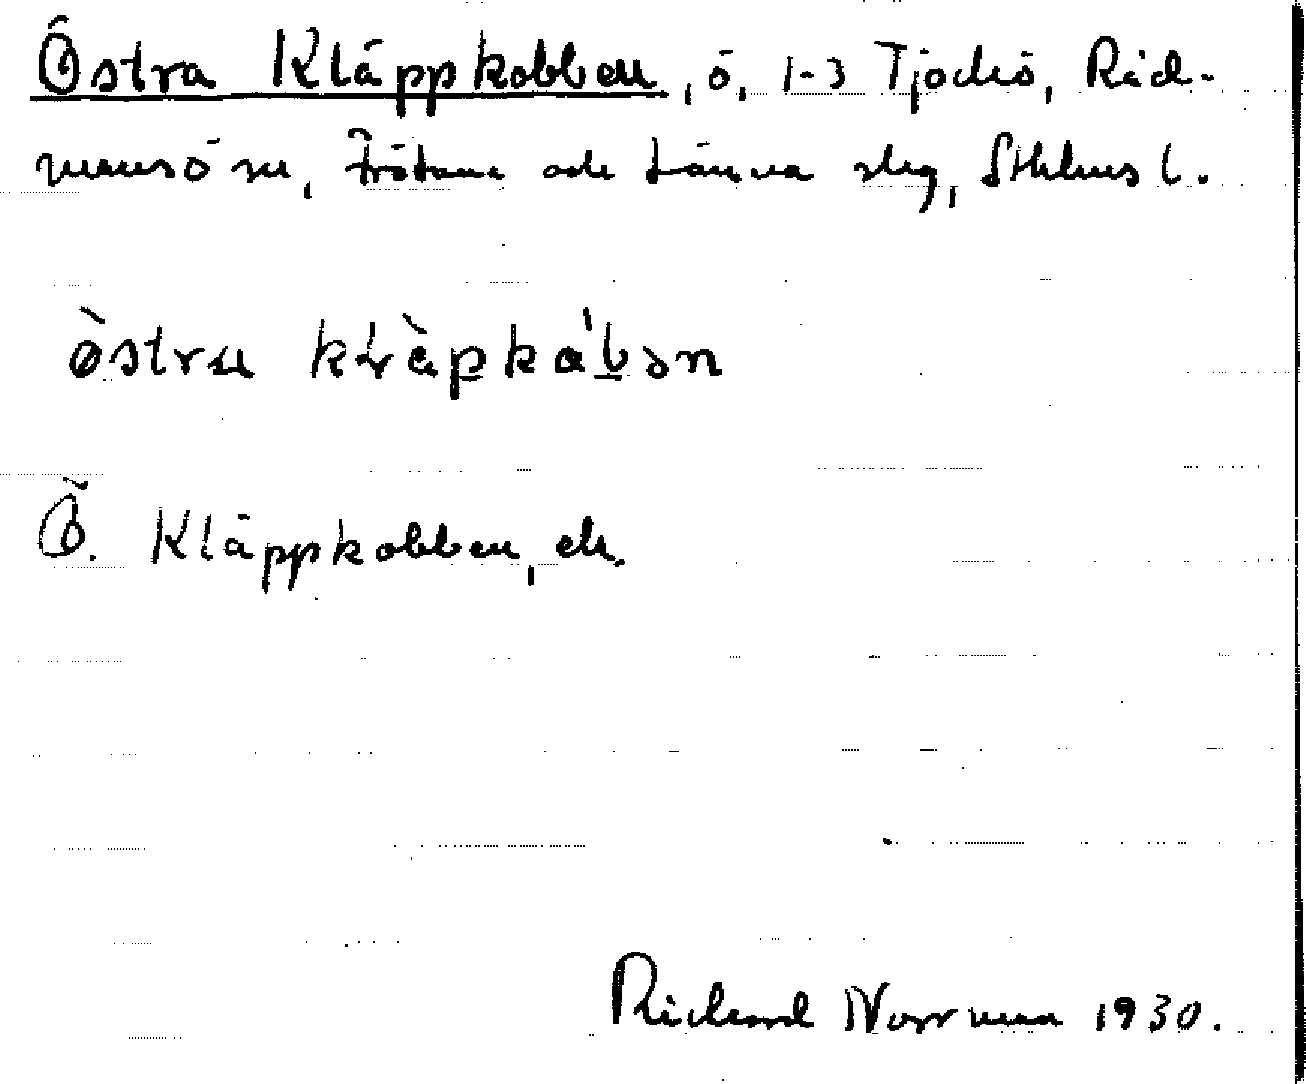 Östra Kläppkobben, ö, 1-3 Tjockö, Råd-
mansö sn, Frötuna och Länna slg, Sthlms l.
östra kläpkåbən
Ö. Kläppkobben, ek.
Richard Norrman 1930.